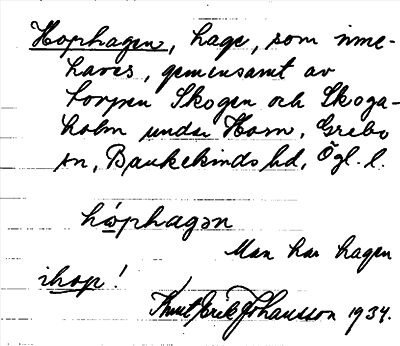 Hophagen, hage, som inne-
haves, gemensamt av
torpen Skogen och Skoga-
holm under Horn, Grebo
sn, Bankekinds hd, Ögl. l.
hω´phagən
Man har hagen
ihop!
Knut Erik Johansson 1934.